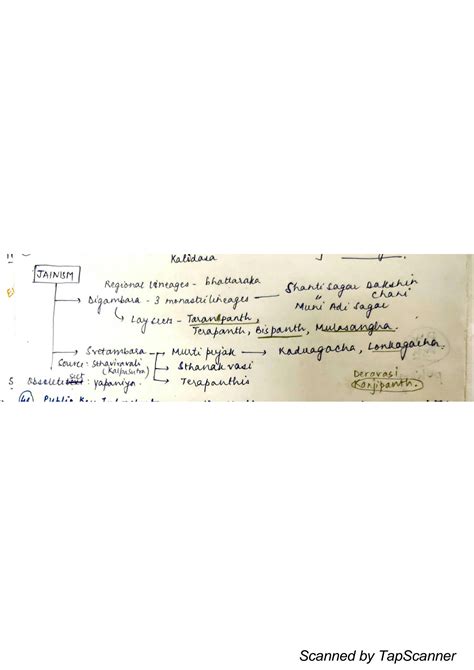 Kalidasa
JAINISM
Regional lineages - bhattaraka
Digambara - 3 monastic lineages — Shanti Sagar Dakshin
" Chani
Muni Adi Sagar
Lay sects - Taranpanth,
Terapanth, Bispanth, Mulasangha.
Svetambara — Murti pujak → Kaduagacha, Lonkagacha.
Source: Sthaviravali
(Kalpasutra)
Sthanakvasi
Obsolete sect: yapaniya.
Terapanthis
Deravasi
Kanjipanth.
Public Key
Scanned by TapScanner